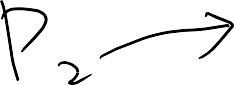 P₂ →